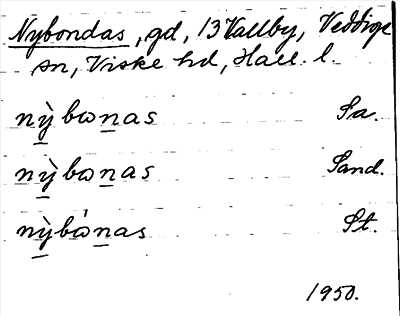 Nybondas, gd, 13 Vallby, Veddige
sn, Viske hd, Hall. l.
nỳ̱bωṉas Sa.
nỳ̱bωṉas Sand.
nỳ̱bὼṉas St.
1950.